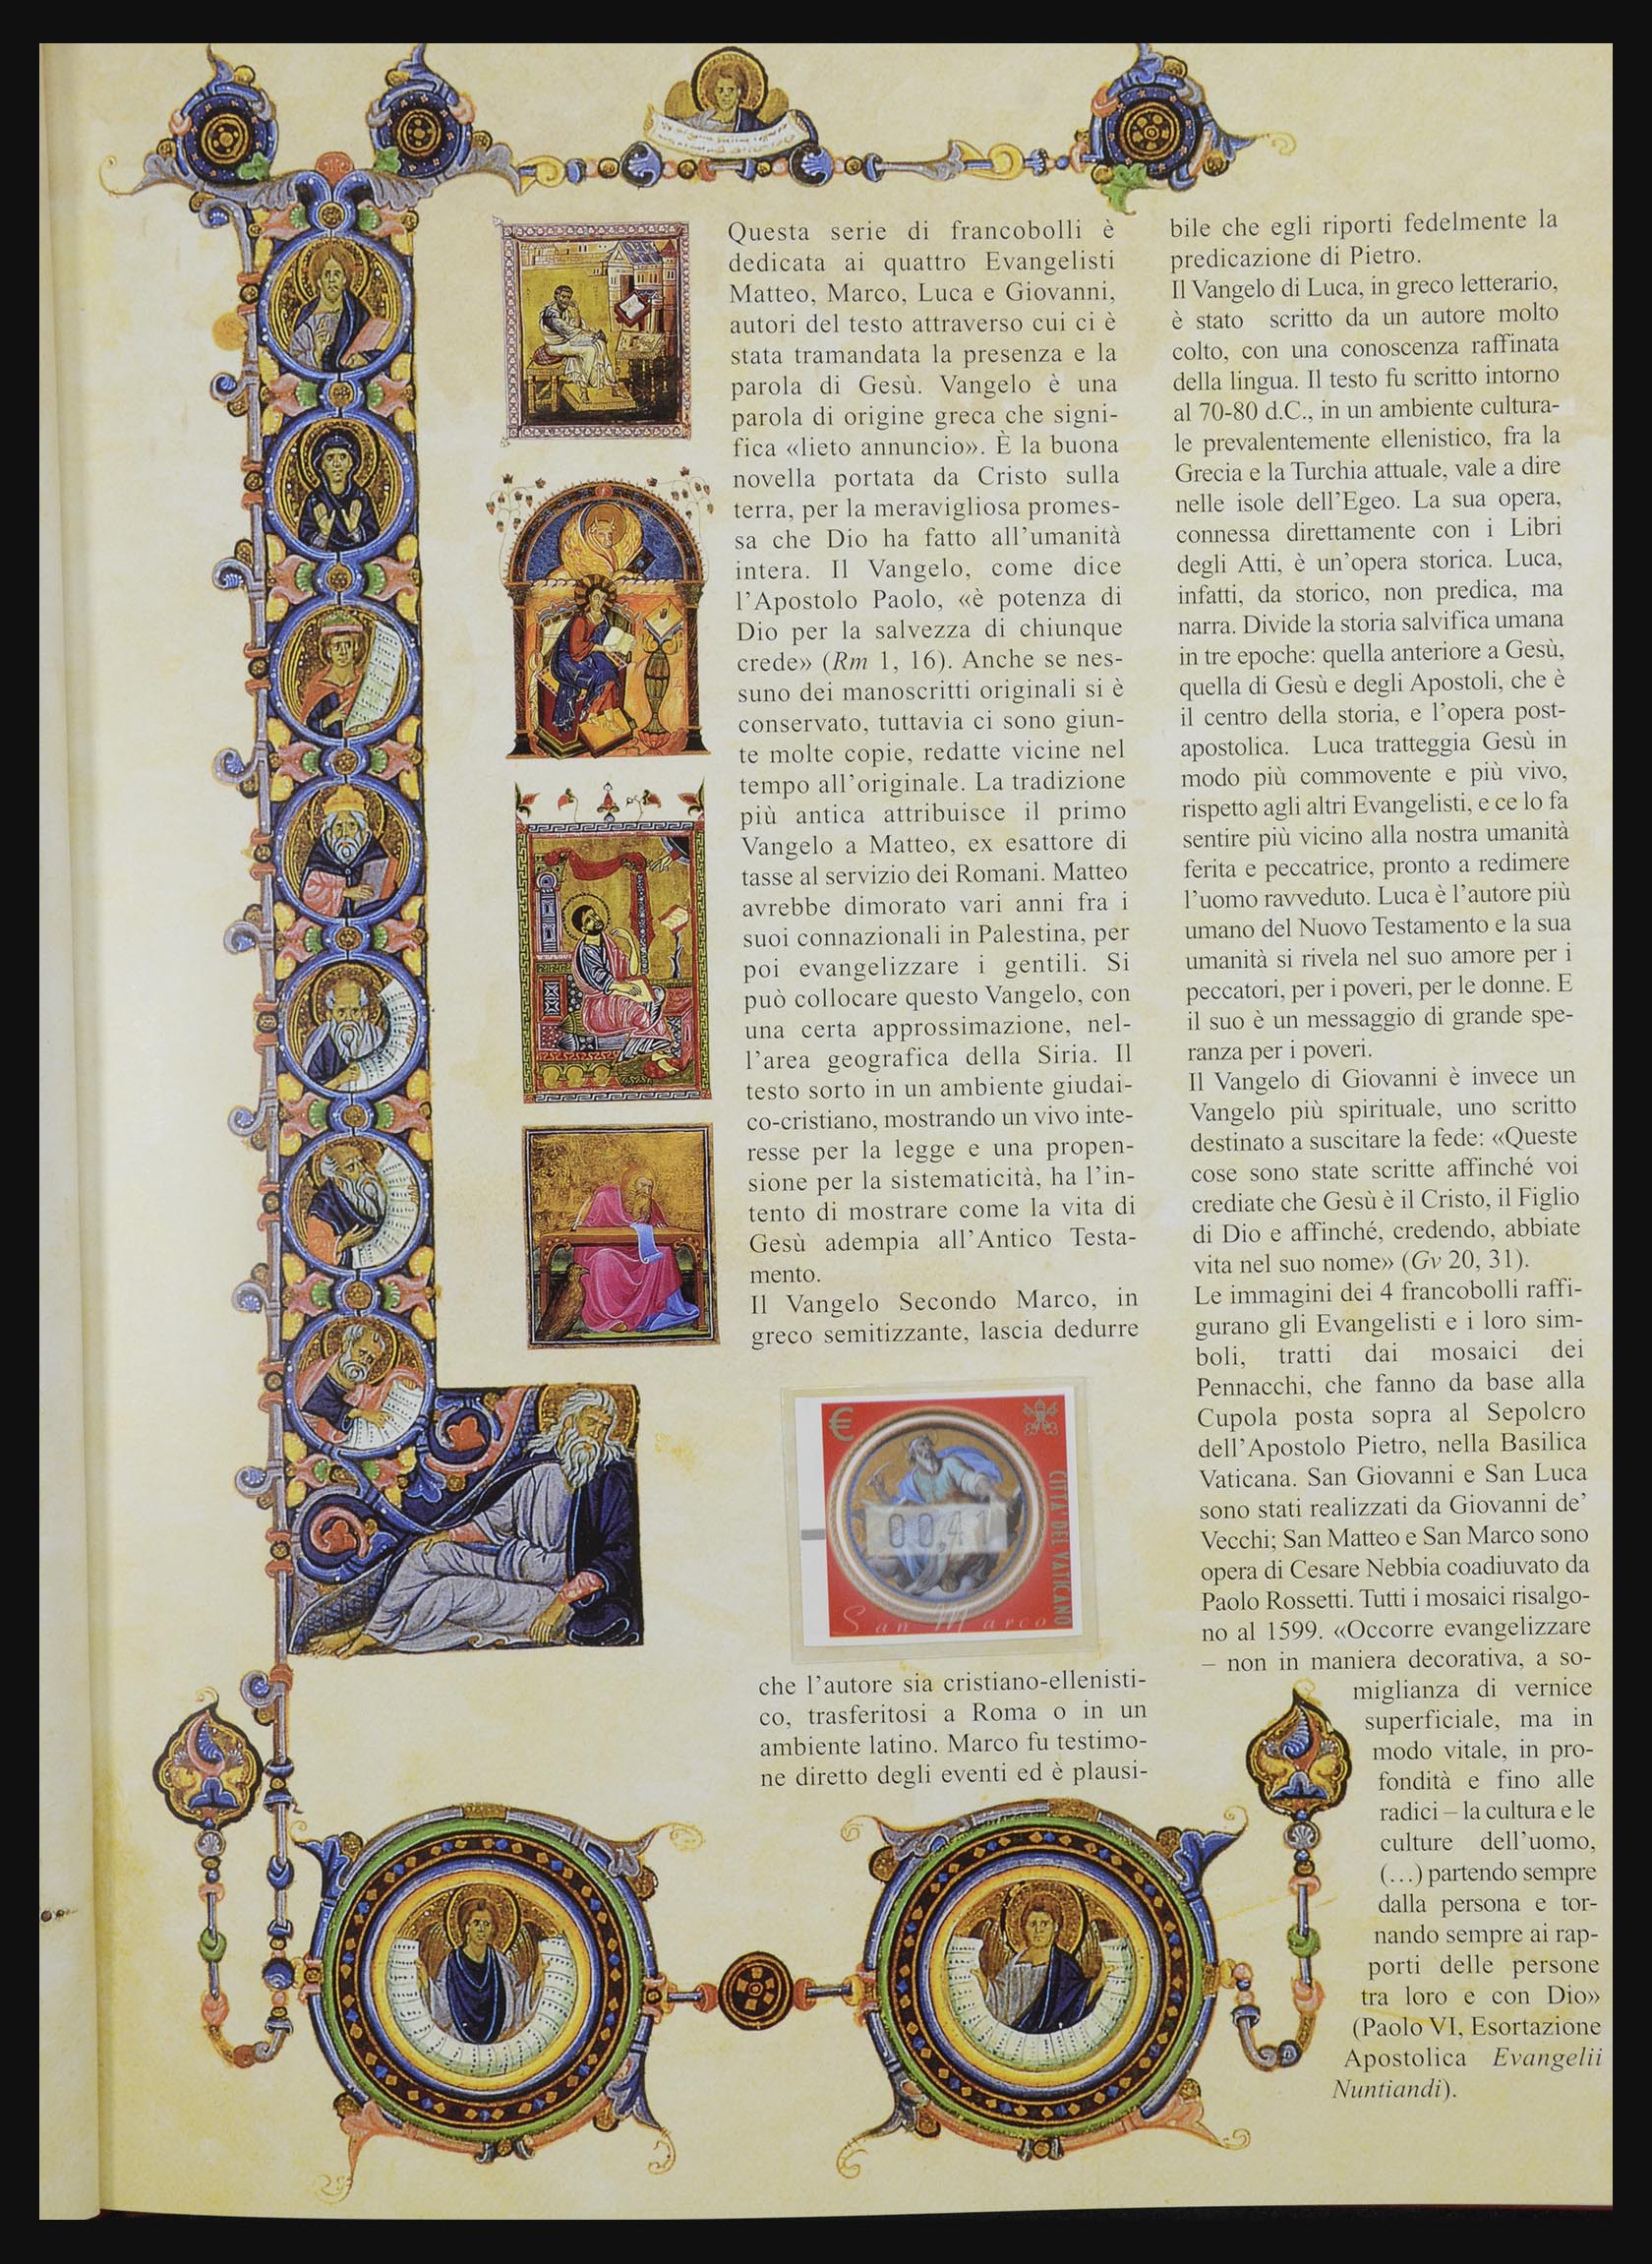 Questa serie di francobolli è
dedicata ai quattro Evangelisti
Matteo, Marco, Luca e Giovanni,
autori del testo attraverso cui ci è
stata tramandata la presenza e la
parola di Gesù. Vangelo è una
parola di origine greca che signi-
fica «lieto annuncio». È la buona
novella portata da Cristo sulla
terra, per la meravigliosa promes-
sa che Dio ha fatto all’umanità
intera. Il Vangelo, come dice
l’Apostolo Paolo, «è potenza di
Dio per la salvezza di chiunque
crede» (Rm 1, 16). Anche se nes-
suno dei manoscritti originali si è
conservato, tuttavia ci sono giun-
te molte copie, redatte vicine nel
tempo all’originale. La tradizione
più antica attribuisce il primo
Vangelo a Matteo, ex esattore di
tasse al servizio dei Romani. Matteo
avrebbe dimorato vari anni fra i
suoi connazionali in Palestina, per
poi evangelizzare i gentili. Si
può collocare questo Vangelo, con
una certa approssimazione, nel-
l’area geografica della Siria. Il
testo sorto in un ambiente giudai-
co-cristiano, mostrando un vivo inte-
resse per la legge e una propen-
sione per la sistematicità, ha l’in-
tento di mostrare come la vita di
Gesù adempia all’Antico Testa-
mento.
Il Vangelo Secondo Marco, in
greco semitizzante, lascia dedurre
€
CITTA' DEL VATICANO
00,41
San Marco
che l’autore sia cristiano-ellenisti-
co, trasferitosi a Roma o in un
ambiente latino. Marco fu testimo-
ne diretto degli eventi ed è plausi-
bile che egli riporti fedelmente la
predicazione di Pietro.
Il Vangelo di Luca, in greco letterario,
è stato scritto da un autore molto
colto, con una conoscenza raffinata
della lingua. Il testo fu scritto intorno
al 70-80 d.C., in un ambiente cultura-
le prevalentemente ellenistico, fra la
Grecia e la Turchia attuale, vale a dire
nelle isole dell’Egeo. La sua opera,
connessa direttamente con i Libri
degli Atti, è un’opera storica. Luca,
infatti, da storico, non predica, ma
narra. Divide la storia salvifica umana
in tre epoche: quella anteriore a Gesù,
quella di Gesù e degli Apostoli, che è
il centro della storia, e l’opera post-
apostolica. Luca tratteggia Gesù in
modo più commovente e più vivo,
rispetto agli altri Evangelisti, e ce lo fa
sentire più vicino alla nostra umanità
ferita e peccatrice, pronto a redimere
l’uomo ravveduto. Luca è l’autore più
umano del Nuovo Testamento e la sua
umanità si rivela nel suo amore per i
peccatori, per i poveri, per le donne. E
il suo è un messaggio di grande spe-
ranza per i poveri.
Il Vangelo di Giovanni è invece un
Vangelo più spirituale, uno scritto
destinato a suscitare la fede: «Queste
cose sono state scritte affinché voi
crediate che Gesù è il Cristo, il Figlio
di Dio e affinché, credendo, abbiate
vita nel suo nome» (Gv 20, 31).
Le immagini dei 4 francobolli raffi-
gurano gli Evangelisti e i loro sim-
boli, tratti dai mosaici dei
Pennacchi, che fanno da base alla
Cupola posta sopra al Sepolcro
dell’Apostolo Pietro, nella Basilica
Vaticana. San Giovanni e San Luca
sono stati realizzati da Giovanni de’
Vecchi; San Matteo e San Marco sono
opera di Cesare Nebbia coadiuvato da
Paolo Rossetti. Tutti i mosaici risalgo-
no al 1599. «Occorre evangelizzare
– non in maniera decorativa, a so-
miglianza di vernice
superficiale, ma in
modo vitale, in pro-
fondità e fino alle
radici – la cultura e le
culture dell’uomo,
(…) partendo sempre
dalla persona e tor-
nando sempre ai rap-
porti delle persone
tra loro e con Dio»
(Paolo VI, Esortazione
Apostolica Evangelii
Nuntiandi).